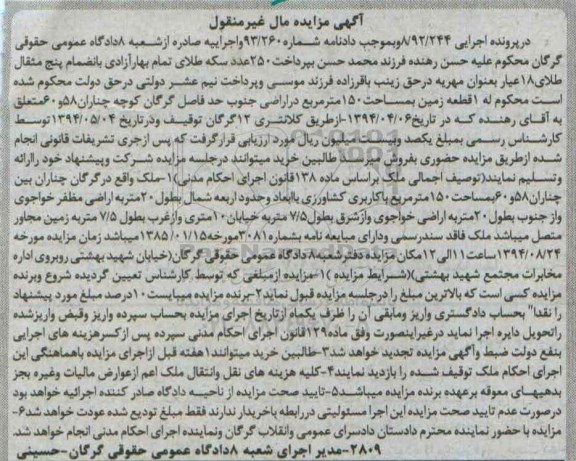 آگهی مزایده مال غیرمنقول
درپرونده اجرایی ۸/۹۲/۲۴۴وبموجب دادنامه شماره۹۳/۲۶۰واجراییه صادره ازشعبه ۸دادگاه عمومی حقوقی
گرگان محکوم علیه حسن رهنده فرزند محمد حسن بپرداخت۲۵۰عدد سکه طلای تمام بهارآزادی بانضمام پنج مثقال
طلای۱۸عیار بعنوان مهریه درحق زینب باقرزاده فرزند موسی وپرداخت نیم عشر دولتی درحق دولت محکوم شده
است محکوم له ۱قطعه زمین بمساحت۱۵۰مترمربع دراراضی جنوب حد فاصل گرگان کوچه چناران۵۸و۶۰متعلق
به آقای رهنده که در تاریخ۱۳۹۴/۰۴/۰۶-ازطریق کلانتری ۱۲گرگان توقیف ودرتاریخ ۱۳۹۴/۰۵/۰۴توسط
کارشناس رسمی بمبلغ یکصد وبیست میلیون ریال مورد ارزیابی قرارگرفت که پس ازجری تشریفات قانونی انجام
شده ازطریق مزایده حضوری بفروش میرسد طالبین خرید میتوانند درجلسه مزایده شرکت وپیشنهاد خود راارائه
وتسلیم نمایند(توصیف اجمالی ملک براساس ماده ۱۳۸قانون اجرای احکام مدنی)۱-ملک واقع درگرگان چناران بین
چناران۵۸و۶۰بمساحت۱۵۰مترمربع باکاربری کشاورزی باابعاد وحدود اربعه شمال بطول۲۰متربه اراضی مظفر خواجوی
واز جنوب بطول۲۰متربه اراضی خواجوی وازشرق بطول۷/۵ متربه خیابان۱۰متری وازغرب بطول ۷/۵ متربه زمین مجاور
متصل میباشد ملک فاقد سندرسمی ودارای مبایعه نامه بشماره۳۰۸۱مورخه۱۳۸۵/۰۱/۱۵میباشد زمان مزایده مورخه
۱۳۹۴/۰۸/۲۴ساعت۱۱الی۱۲مکان مزایده دفترشعبه۸دادگاه عمومی حقوقی گرگان(خیابان شهیدبهشتی روبروی اداره
مخابرات مجتمع شهید بهشتی)(شرایط مزایده )۱-مزایده ازمبلغی که توسط کارشناس تعیین گردیده شروع وبرنده
مزایده کسی است که بالاترین مبلغ را درجلسه مزایده قبول نماید۲-برنده مزایده میبایست۱۰درصد مبلغ مورد پیشنهاد
را نقدا" بحساب دادگستری واریز ومابقی آن را ظرف یکماه ازتاریخ اجرای مزایده بحساب سپرده واریز وقبض واریزشده
راتحویل دایره اجرا نماید درغیراینصورت وفق ماده۱۲۹قانون اجرای احکام مدنی سپرده پس ازکسرهزینه های اجرایی
بنفع دولت ضبط وآگهی مزایده تجدید خواهد شد۳-طالبین خرید میتوانند۱هفته قبل ازاجرای مزایده باهماهنگی این
اجرای احکام ملک توقیف شده را بازدید نمایند۴-کلیه هزینه های نقل وانتقال ملک اعم ازعوارض مالیات وغیره بجز
بدهیهای معوقه برعهده برنده مزایده میباشد۵-تایید صحت مزایده از ناحیه دادگاه صادر کننده اجرائیه خواهد بود
درصورت عدم تایید صحت مزایده این اجرا مسئولیتی دررابطه باخریدار ندارند فقط مبلغ تودیع شده عودت خواهد شد۶-
مزایده با حضور نماینده محترم دادستان دادسرای عمومی وانقلاب گرگان ونماینده اجرای احکام مدنی انجام خواهد شد.
۲۸۰۹-مدیر اجرای شعبه ۸دادگاه عمومی حقوقی گرگان-حسینی